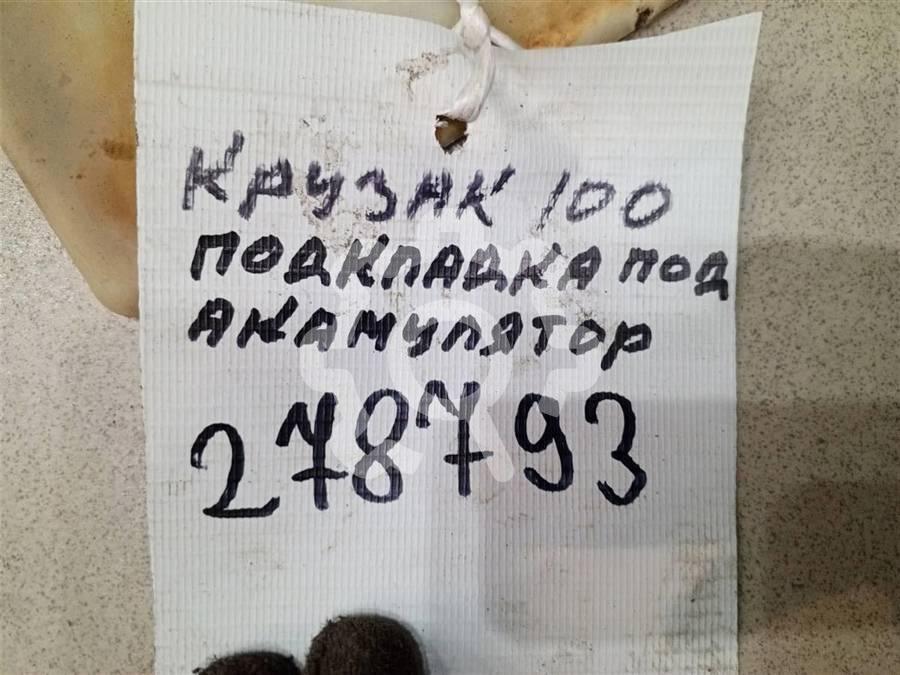 Крузак 100
подкладка под
акамулятор
278793